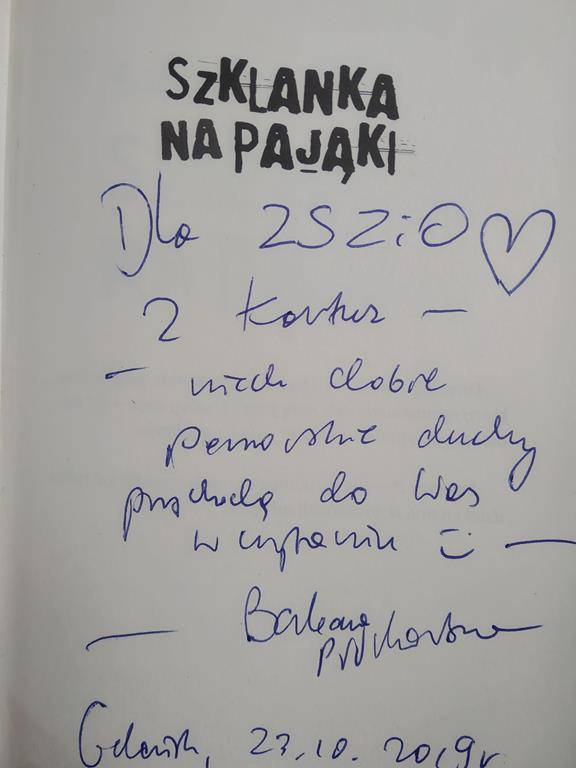 SZKLANKA
NA PAJĄKI
Dla ZSZiO
z Kartuz —
— niech dobre
pomorskie duchy
przychodzą do Was
w czytaniu
— Barbara
Piórkowska
Gdańsk, 23.10.2019r